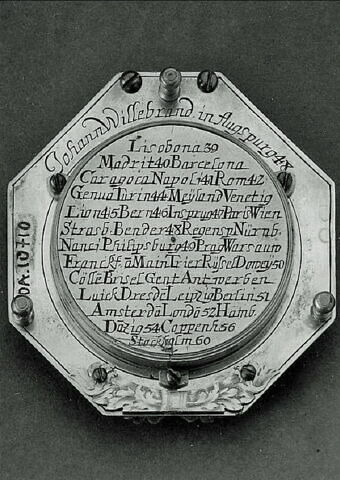 Johann Willebrand in Augspurg 48
Lisobona 39
Madrit 40 Barcelona
Caragoca Napoli 41 Rom 42
Genua Turin 44 Meyland Venetig
Lion 45 Bern 46 Insprug 47 Paris Wien
Strasb. Bender 48 Regensp Nürnb.
Nanci Philipsburg 49 Prag Warsauw
Franckf. u Main Trier Ryssel Dovey 50
Cölle Brisel Gent Antwerben
Luick Dresdel Leipzig Berlin 51
Amsterda Londo 52 Hamb.
Dazig 54 Coppenh. 56
Stockholm 60
OA. 10710